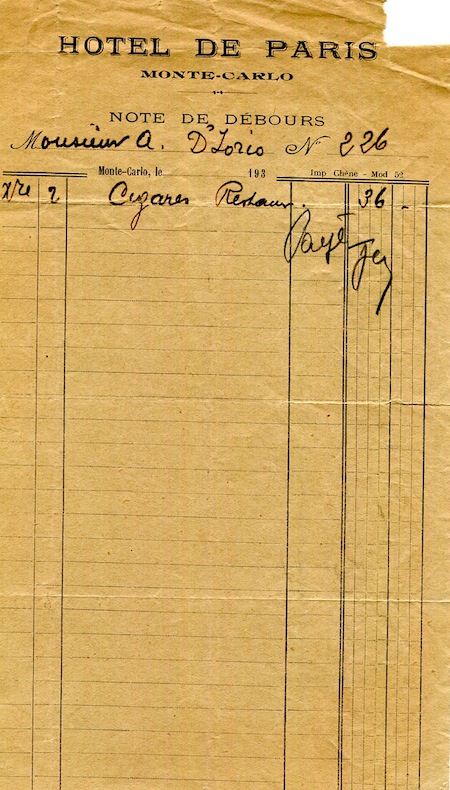 HOTEL DE PARIS
MONTE-CARLO
NOTE DE DÉBOURS
Monsieur A. D'Iorio N° 226
Monte-Carlo, le 193 Imp Chêne - Mod 52
Xre 2 Cigares Restaur. 36 -
Payé